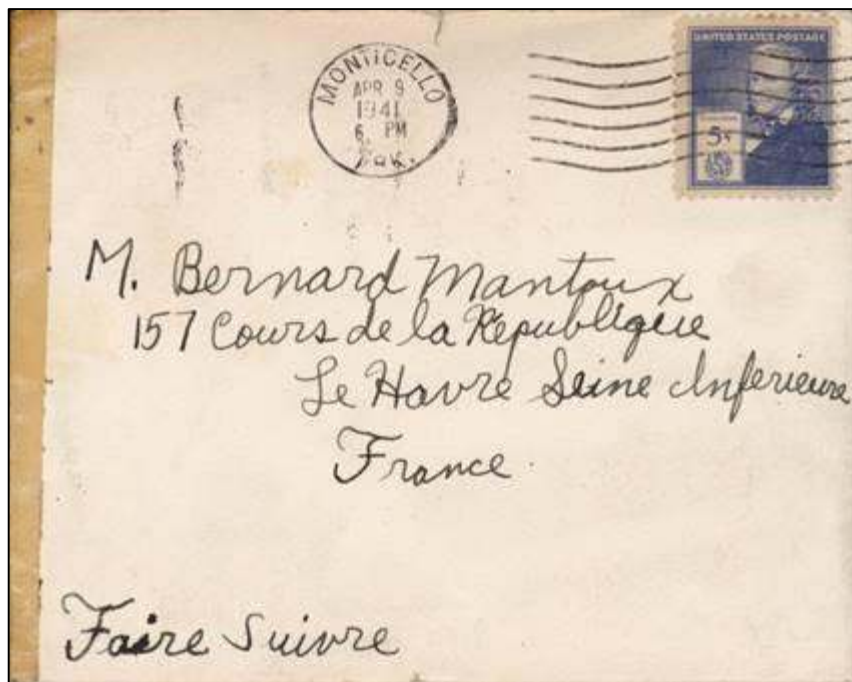 MONTICELLO
APR 9
1941
6 PM
UNITED STATES POSTAGE
5¢
M. Bernard Mantoux
157 Cours de la Republique
Le Havre Seine Inferieure
France
Faire Suivre